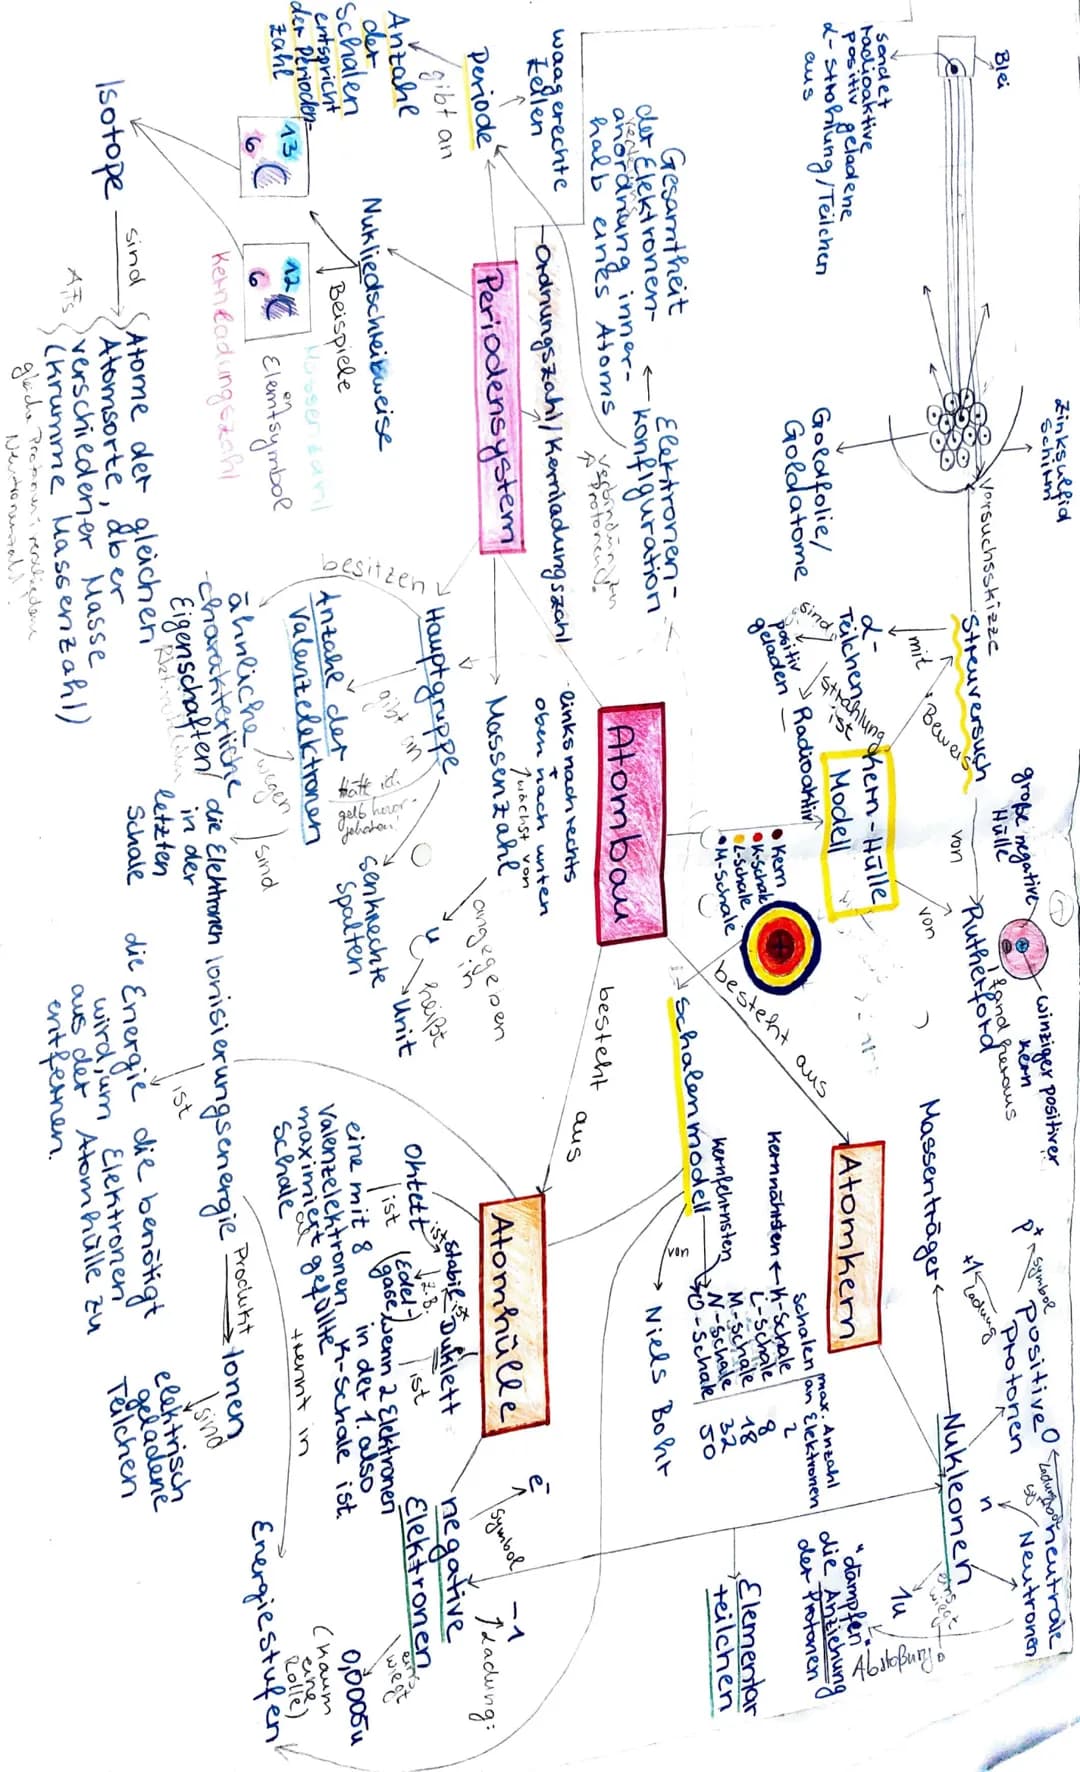 Blei
sendet
radioaktive
positiv geladene
α-Strahlung/Teilchen
aus
Zinksulfid
Schirm
Goldfolie/
Goldatome
Versuchsskizze
Streuversuch
mit
Beweis
α-
Teilchen
sind
positiv
geladen
Strahlung
ist
Radioaktiv
Kern-Hülle
Modell
von
von
Rutherford
fand heraus
große negative
Hülle
winziger positiver
Kern
Kern
K-Schale
L-Schale
M-Schale
Atombau
besteht aus
besteht aus
Atomkern
Massenträger
Nukleonen
positive
Protonen
p+
Symbol
+1
Ladung
0
Ladung
neutrale
Neutronen
n
wiegt
1u
"dämpfen"
die Anziehung
der Protonen
Abstoßung
Elementar
teilchen
Schalenmodell
von
Niels Bohr
kernnähsten
kernfernsten
Schalen
K-Schale
L-Schale
M-Schale
N-Schale
O-Schale
max. Anzahl
an Elektronen
2
8
18
32
50
Atomhülle
negative
Elektronen
Symbol
e-
Ladung:
-1
wiegt
0,0005u
(kaum
eine
Rolle)
Oktett
ist
stabil
ist
Duklett
z.B.
(Edel-
gase)
ist
wenn 2 Elektronen
in der 1. also
K-Schale ist.
ist
eine mit 8
Valenzelektronen
maximiert gefüllte
Schale
Energiestufen
trennt in
Ionisierungsenergie
ist
die Energie die benötigt
wird, um Elektronen
aus der Atomhülle zu
entfernen.
Produkt
Ionen
sind
elektrisch
geladene
Teilchen
Periodensystem
Ordnungszahl/Kernladungszahl
links nach rechts
+
oben nach unten
wächst von
Massenzahl
angegeben
in
u
heißt
Unit
Elektronen-
konfiguration
Gesamtheit
der Elektronen-
anordnung inner-
halb eines Atoms
Periode
waagerechte
Zeilen
gibt an
Anzahl
der
Schalen
entspricht
der Perioden-
zahl
Hauptgruppe
besitzen
ähnliche
charakterliche
Eigenschaften
wegen
die Elektronen
in der
letzten
Schale
sind
gibt an
Anzahl der
Valenzelektronen
hätte ich
gelb hervor-
gehoben
senkrechte
Spalten
Nukliedschreibweise
Beispiele
13
6
C
12
6
C
Massenzahl
Elemtsymbol
Kernladungszahl
Isotope
sind
Atome der gleichen
Atomsorte, aber
verschiedener Masse
(krumme Massenzahl)